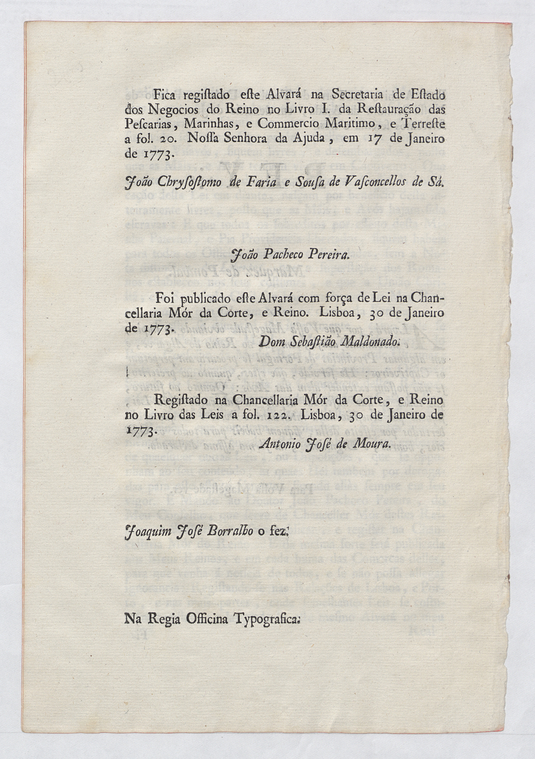 Fica registado este Alvará na Secretaria de Estado
dos Negocios do Reino no Livro I. da Restauração das
Pescarias, Marinhas, e Commercio Maritimo, e Terreste
a fol. 20. Nossa Senhora da Ajuda, em 17 de Janeiro
de 1773.
João Chrysostomo de Faria e Sousa de Vasconcellos de Sá.
João Pacheco Pereira.
Foi publicado este Alvará com força de Lei na Chan-
cellaria Mór da Corte, e Reino. Lisboa, 30 de Janeiro
de 1773.
Dom Sebastião Maldonado.
Registado na Chancellaria Mór da Corte, e Reino
no Livro das Leis a fol. 122. Lisboa, 30 de Janeiro de
1773.
Antonio José de Moura.
Joaquim José Borralho o fez.
Na Regia Officina Typografica.